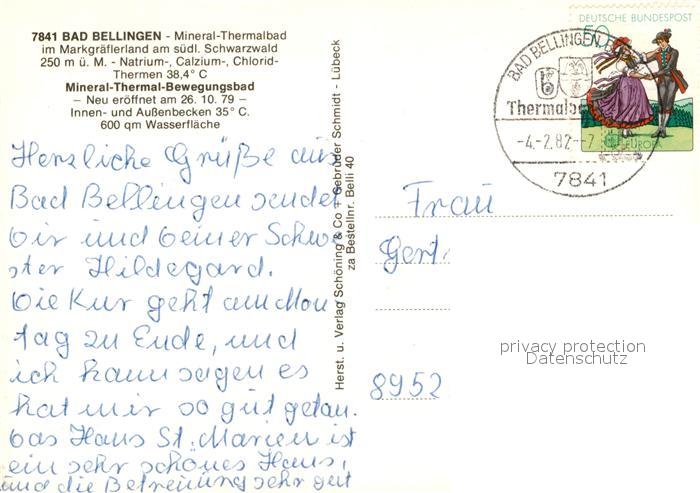 7841 BAD BELLINGEN - Mineral-Thermalbad
im Markgräflerland am südl. Schwarzwald
250 m ü. M. - Natrium-, Calzium-, Chlorid-
Thermen 38,4° C
Mineral-Thermal-Bewegungsbad
– Neu eröffnet am 26. 10. 79 –
Innen- und Außenbecken 35° C.
600 qm Wasserfläche
Herzliche Grüße aus
Bad Bellingen sendet
dir und deiner Schwe
ster Hildegard.
Die Kur geht am Mon
tag zu Ende, und
ich kann sagen es
hat mir so gut getan.
Das Haus St. Marien ist
ein sehr schönes Haus,
und die Betreuung sehr gut
Herst. u. Verlag Schöning & Co + Gebrüder Schmidt - Lübeck
zu Bestellnr. Belli 40
DEUTSCHE BUNDESPOST
50
EUROPA
BAD BELLINGEN
Thermalb
-4.-2.82.--7
7841
Frau
Gert
8952
privacy protection
Datenschutz